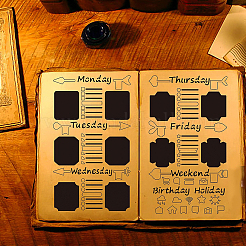 Monday
Tuesday
Wednesday
Thursday
Friday
Weekend
Birthday Holiday